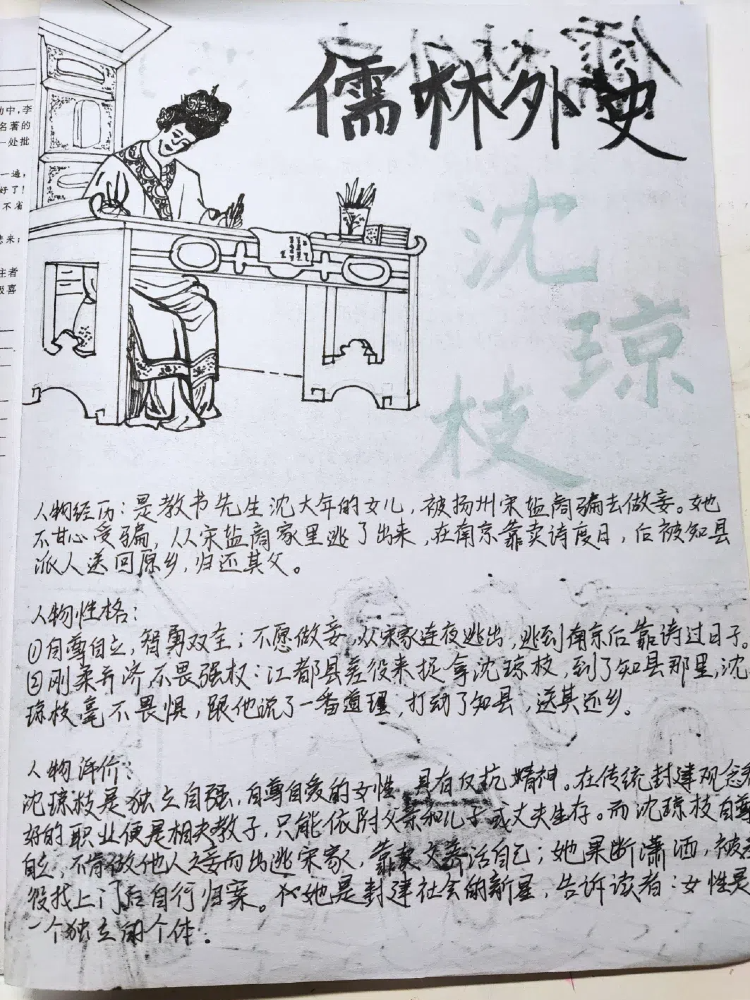 儒林外史
沈琼枝
人物经历：是教书先生沈大年的女儿，被扬州宋盐商骗去做妾。她
不甘心受骗，从宋盐商家里逃了出来，在南京靠卖诗度日，后被知县
派人送回原乡，归还其父。
人物性格：
①自尊自立，智勇双全；不愿做妾，从宋家连夜逃出，逃到南京后靠诗过日子。
②刚柔并济不畏强权：江都县差役来捉拿沈琼枝，到了知县那里，沈
琼枝毫不畏惧，跟他说了一番道理，打动了知县，送其还乡。
人物评价：
沈琼枝是独立自强，自尊自爱的女性，具有反抗精神。在传统封建观念
好的职业便是相夫教子，只能依附父亲和儿子或丈夫生存。而沈琼枝自尊
自立，不肯做他人之妾而出逃宋家，靠卖文养活自己；她果断潇洒，被
役找上门后自行归案。她是封建社会的新星，告诉读者：女性是
一个独立的个体.
中，李
名著的
一处批
一遍，
好了！
不省
来；
主者
及喜